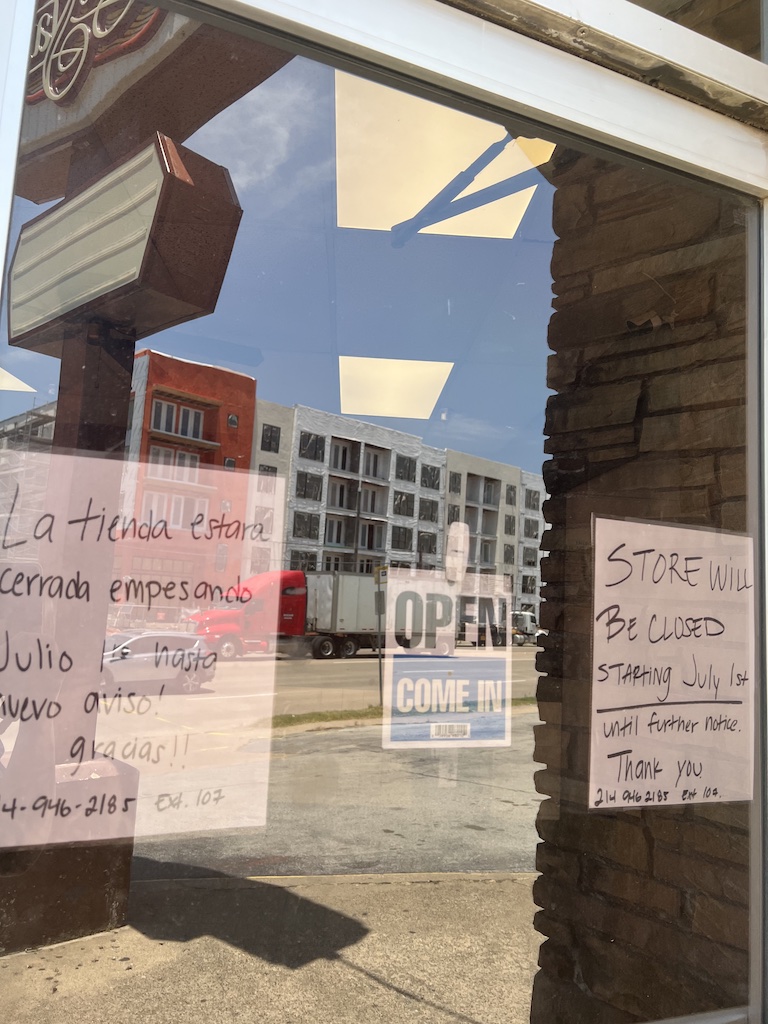 La tienda estara
cerrada empesando
Julio 1º hasta
nuevo aviso!
gracias!!
214-946-2185 Ext. 107
OPEN
COME IN
STORE WILL
BE CLOSED
STARTING July 1st
until further notice.
Thank you
214 946 2185 Ext 107.